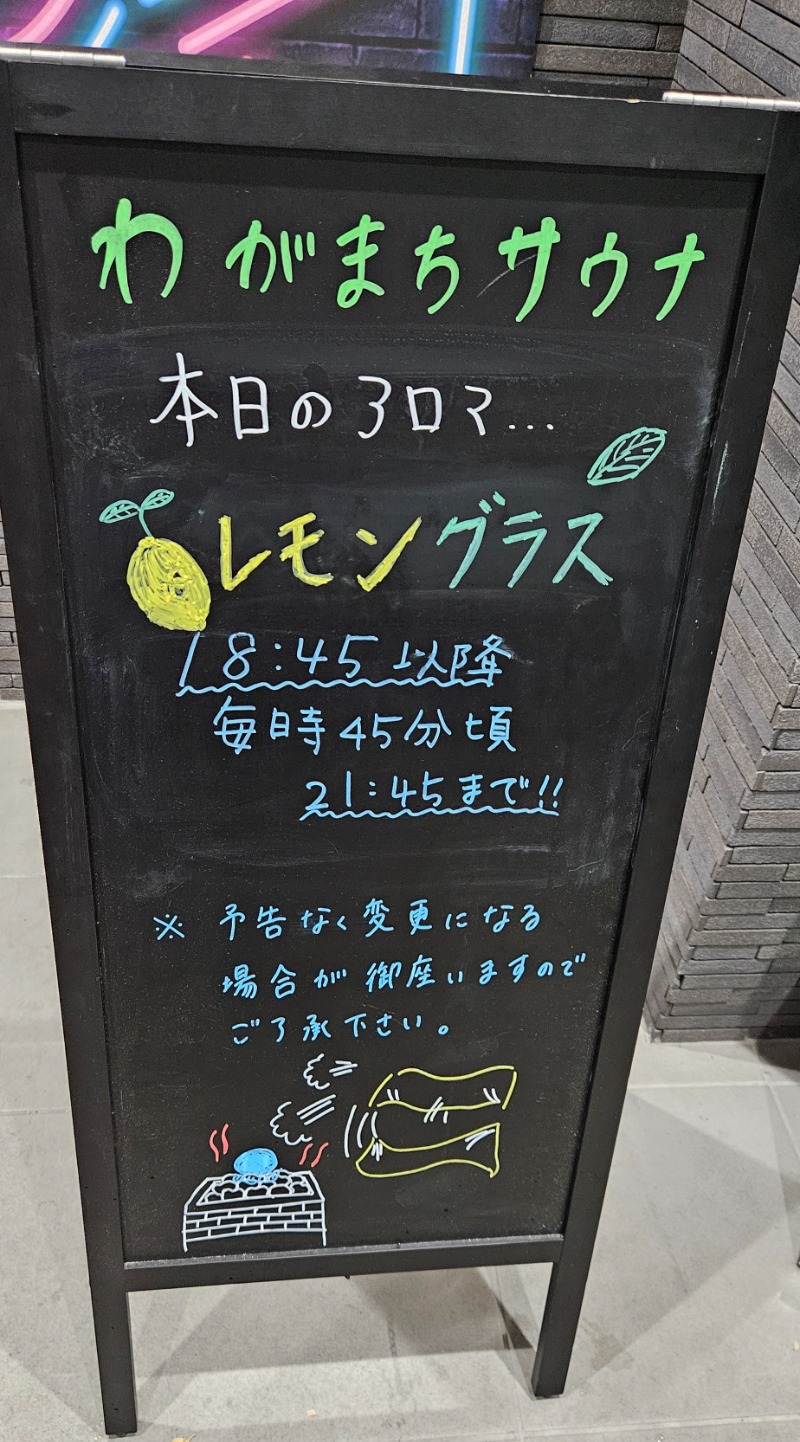 わがまちサウナ
本日のアロマ...
レモングラス
18:45以降
毎日時45分頃
21:45まで!!
※ 予告なく変更になる
場合が御座いますので
ご了承下さい。